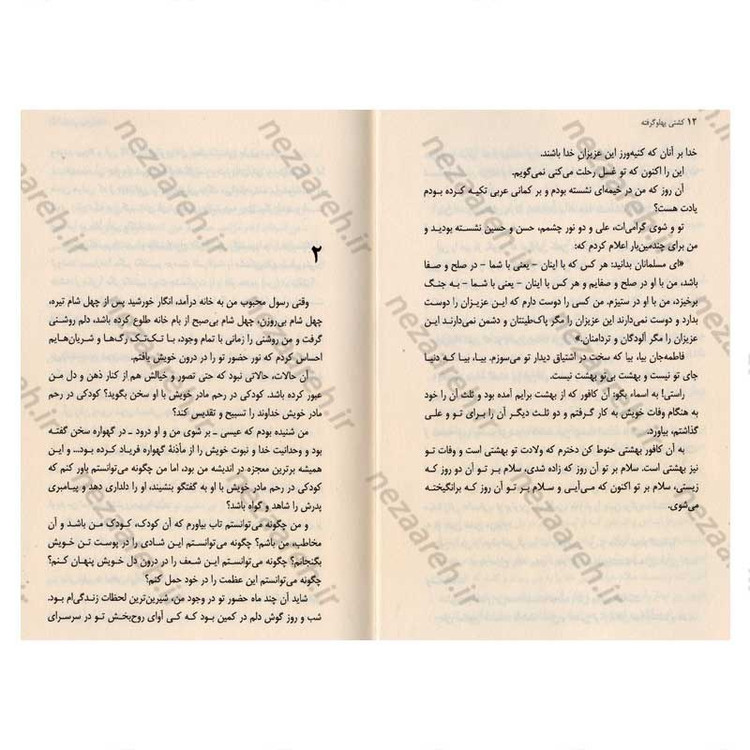 ۱۲ کشتی پهلوگرفته
خدا بر آنان که کنیه‌ورز این عزیزان خدا باشند.
این را اکنون که تو غسل رحلت می‌کنی نمی‌گویم.
آن روز که من در خیمه‌ای نشسته بودم و بر کمانی عربی تکیه کرده بودم
یادت هست؟
تو و شوی گرامی‌ات، علی و دو نور چشمم، حسن و حسین نشسته بودید و
من برای چندمین‌بار اعلام کردم که:
«ای مسلمانان بدانید: هر کس که با اینان - یعنی با شما - در صلح و صفا
باشد، من با او در صلح و صفایم و هر کس با اینان - یعنی با شما - به جنگ
برخیزد، من با او در ستیزم. من کسی را دوست دارم که این عزیزان را دوست
بدارد و دوست نمی‌دارند این عزیزان را مگر پاک‌طینتان و دشمن نمی‌دارند این
عزیزان را مگر آلودگان و تردامنان.»
فاطمه‌جان بیا، بیا که سخت در اشتیاق دیدار تو می‌سوزم. بیا، بیا که دنیا
جای تو نیست و بهشت بی‌تو بهشت نیست.
راستی! به اسماء بگو: آن کافور که از بهشت برایم آمده بود و ثلث آن را خود
به هنگام وفات خویش به کار گرفتم و دو ثلث دیگر آن را برای تو و علی
گذاشتم، بیاورد.
به آن کافور بهشتی حنوط کن دخترم که ولادت تو بهشتی است و وفات تو
نیز بهشتی است. سلام بر تو آن روز که زاده شدی، سلام بر تو آن دو روز که
زیستی، سلام بر تو اکنون که می‌آیی و سلام بر تو آن روز که برانگیخته
می‌شوی.
۲
وقتی رسول محبوب من به خانه درآمد، انگار خورشید پس از چهل شام تیره،
چهل شام بی‌روزن، چهل شام بی‌صبح از بام خانه طلوع کرده باشد، دلم روشنی
گرفت و من روشنی را زمانی با تمام وجود، با تک‌تک رگ‌ها و شریان‌هایم
احساس کردم که نور حضور تو را در درون خویش یافتم.
آن حالات، حالاتی نبود که حتی تصور و خیالش هم از کنار ذهن و دل من
عبور کرده باشد. کودکی در رحم مادر خویش با او سخن بگوید؟ کودکی در رحم
مادر خویش خداوند را تسبیح و تقدیس کند؟
من شنیده بودم که عیسی ـ بر شوی من و او درود ـ در گهواره سخن گفته
بود و وحدانیت خدا و نبوت خویش را از مأذنهٔ گهواره فریاد کرده بود... و این
همیشه برترین معجزه در اندیشه من بود، اما من چگونه می‌توانستم باور کنم که
کودکی در رحم مادر خویش با او به گفتگو بنشیند، او را دلداری دهد و پیامبری
پدرش را شاهد و گواه باشد؟
و من چگونه می‌توانستم تاب بیاورم که آن کودک، کودک من باشد و آن
مخاطب، من باشم؟ چگونه می‌توانستم این شادی را در پوست تن خویش
بگنجانم؟ چگونه می‌توانستم این شعف را در درون دل خویش پنهان کنم؟
چگونه می‌توانستم این عظمت را در خود حمل کنم؟
شاید آن چند ماه حضور تو در وجود من، شیرین‌ترین لحظات زندگی‌ام بود.
شب و روز گوش دلم در کمین بود که کی آوای روح‌بخش تو در سرسرای
nezaareh.ir
nezaareh.ir
nezaareh.ir
nezaareh.ir
nezaareh.ir
nezaareh.ir